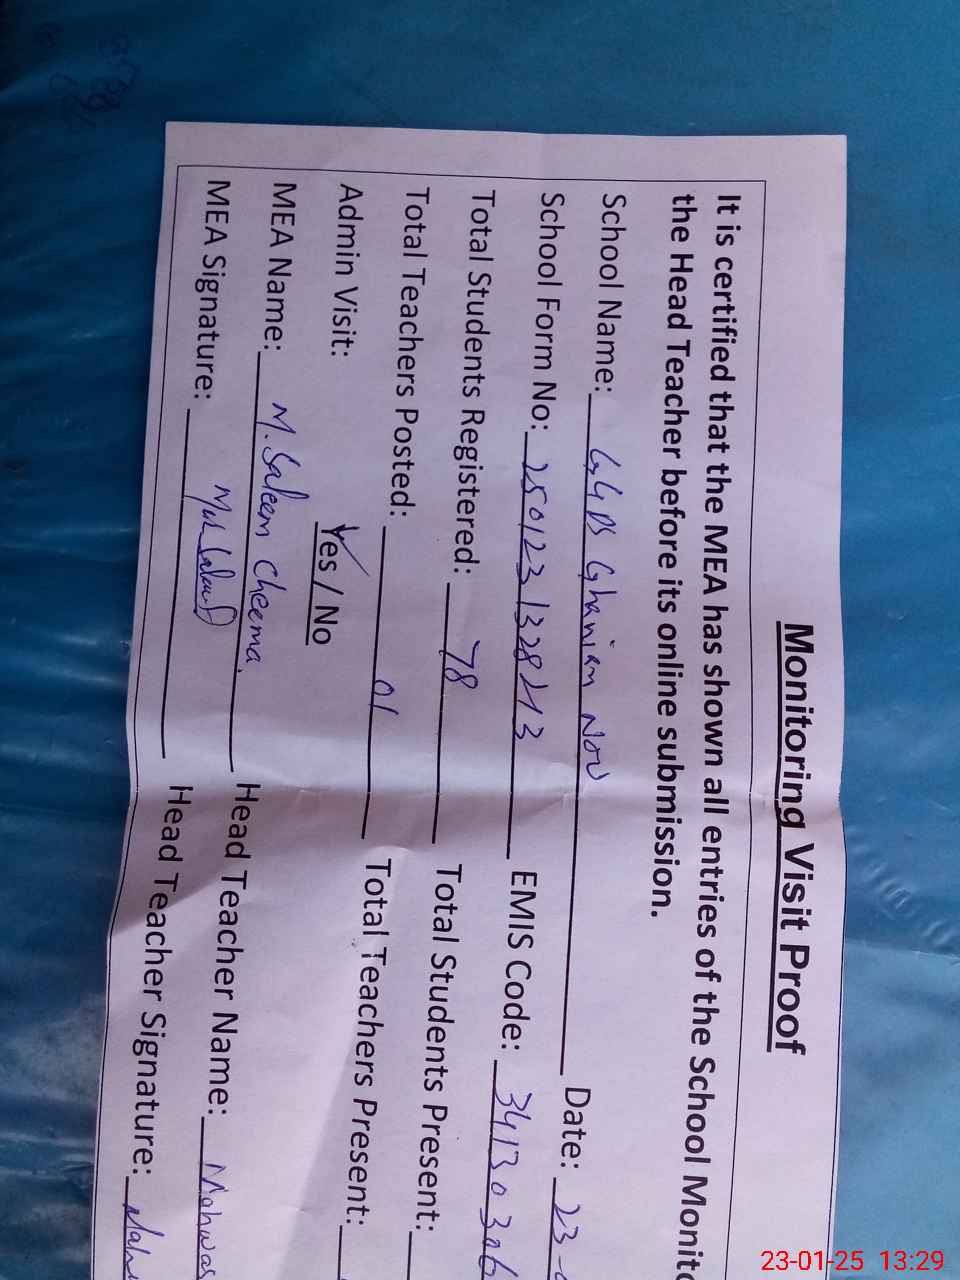 Monitoring Visit Proof
It is certified that the MEA has shown all entries of the School Monito
the Head Teacher before its online submission.
School Name: GGPS Ghanian Nou Date: 23-
School Form No: 2501231328213 EMIS Code: 34130306
Total Students Registered: 78 Total Students Present:
Total Teachers Posted: 01 Total Teachers Present:
Admin Visit: Yes / No
MEA Name: M. Saleem Cheema. Head Teacher Name: Mahwas
MEA Signature: Head Teacher Signature:
23-01-25 13:29